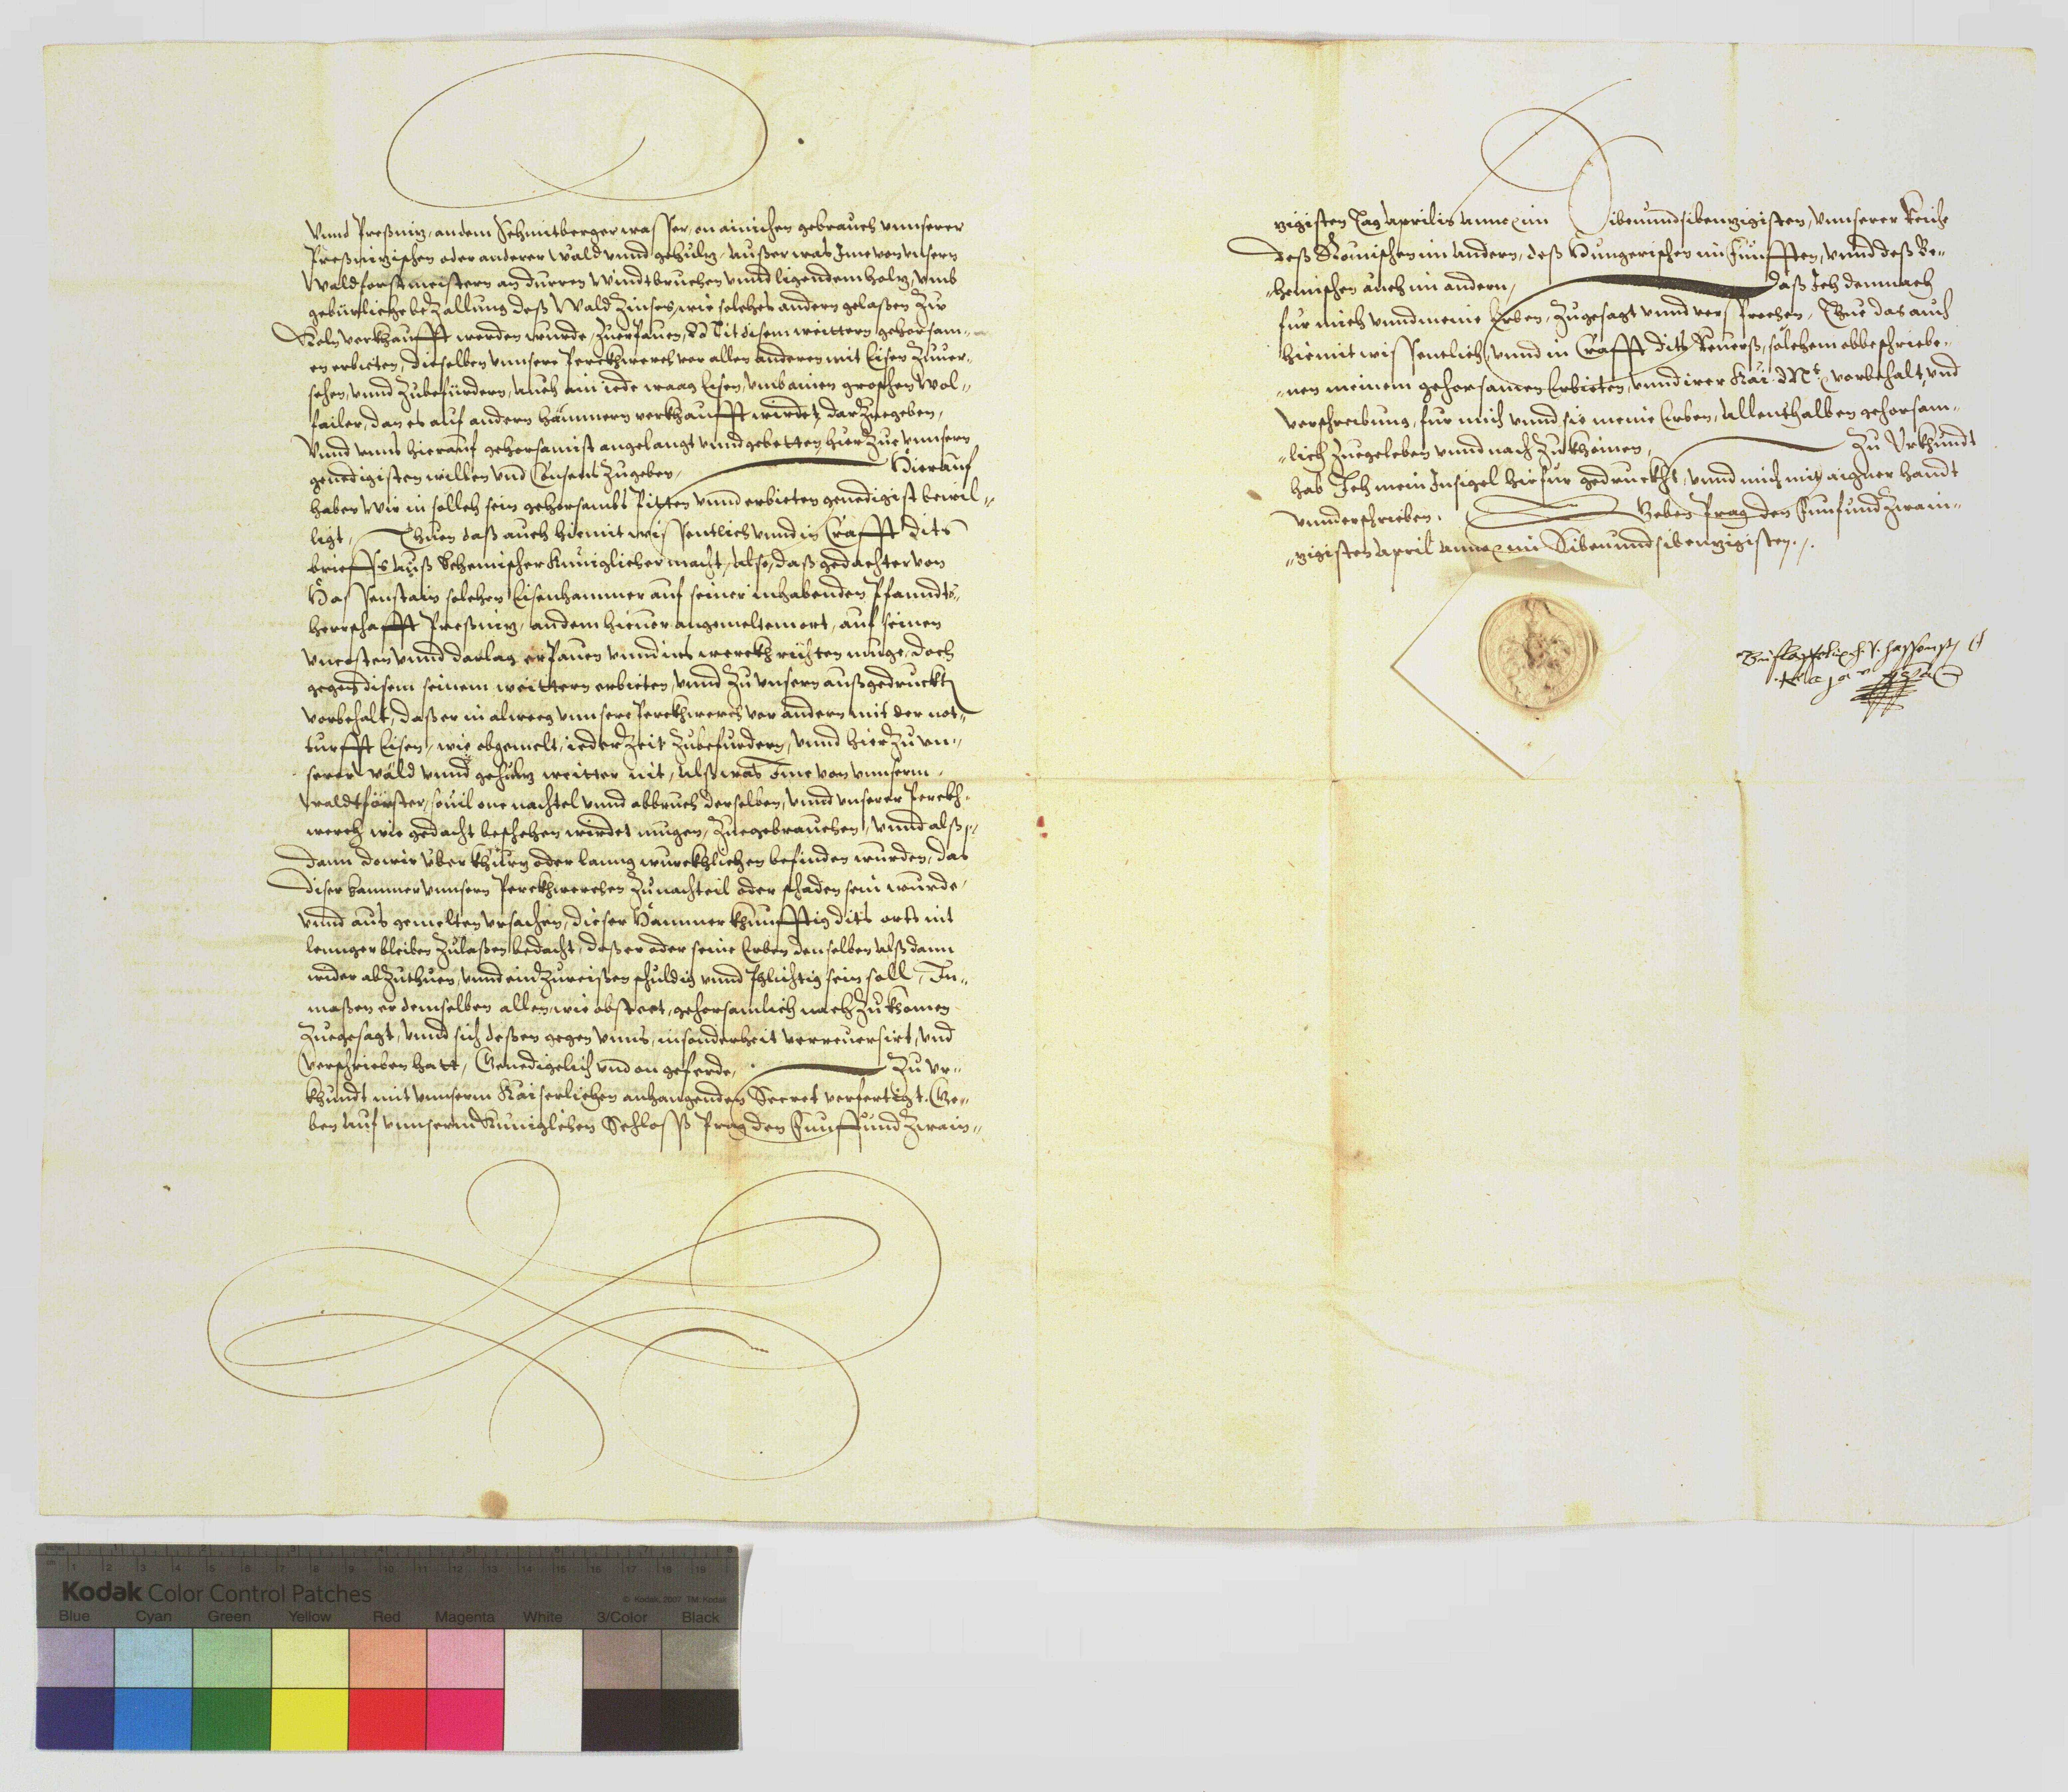 Vnnd Preßnitz, an dem Schmitberger wasser, on ainichen gebrauch vnnserer
Preßnitzischen oder anderer wäld vnnd gehültz, ausser was Ime von vnsern
Waldforstmeistern an dürren Windtbruchen vnnd ligendem holtz, vmb
gebürliche bezallung deß Wald Zinses, wie solches andern gelaßen Zu
Koln verkhaufft werden wurde, Zuerpauen, Mit disem weittern gehorsam-
en erbieten, dieselben vnnsere Perckhwerch vor allen anderen mit Eisen Zuuer-
sehen, vnnd Zubefürdern, auch ain iede waag Eisen, vmb ainen groschen wol-
failer, dan es auf andern hämmern verkhaufft wirdet, dar Zuegeben,
Vnnd vnns hierauf gehorsamist angelangt vnnd gebetten, hier Zue vnnsern
genedigisten willen vnd Consens Zugeben, Hierauf
haben Wir in solch sein gehorsambs Pitten vnnd erbieten genedigist bewil-
ligt, Thuen daß auch hiemit wissentlich vnnd in Crafft dits
brieffs auß Behemischer Küniglicher macht, also, daß gedachter von
Hassenstain solchen Eisenhammer auf seiner inhabenden Pfanndts-
herrschafft Preßnitz, an dem hieuor angemeltem ort, auf seinen
vncosten vnnd darlag erpauen vnnd ins werckh richten muge, doch
gegen disem seinem weittern erbieten, vnnd Zu vnsern außgedruckten
vorbehalt, daß er in alweeg vnnsere Perckhwerch vor andern mit der not-
turfft Eisen, wie obgemelt, ieder Zeit Zubefurdern, vnnd hier Zu vn-
serer wäld vnnd gehültz weitter nit, alß was Ime von vnnserm
waldtförster, souil one nachtel vnnd abbruch derselben, vnnd vnserer Perckh-
werch wie gedacht beschehen wirdet mugen, Zuegebrauchen, vnnd alß
dann do wir vber khurtz oder lanng wurckhlichen befinden wurden, das
diser hammer vnnsern Perckhwerchen Zu nachteil oder schaden sein wurde,
vnnd aus gemelten vrsachen, dieser Hammer khunfftig dits orts nit
lennger bleiben Zulaßen bedacht, daß er oder seine Erben denselben alß dann
wider ab Zuthuen, vnnd ein Zureißen schuldig vnnd pflichtig sein soll, In-
maßen er demselben allen, wie obsteet, gehorsamlich nach Zukhomen
Zuegesagt, vnnd sich deßen gegen vnns, in sonderheit verreuersirt, vnd
verschrieben hatt, Genedigelich vnd on geferde, Zu vr-
khundt mit vnnserm Kaiserlichen anhangenden Secret verfertigt. Ge-
ben auf vnnserm Kuniglichen Schloss Prag den Funffund Zwain-
tzigisten Tag Aprilis Anno etc im Sibenundsibentzigisten, Vnnserer Reiche
deß Römischen im Andern, deß Hungerischen im Fünfften, vnnd deß Be-
hemischen auch im andern, daß Ich demnach
fur mich vnnd meine Erben, Zugesagt vnnd versprochen, Thue das auch
hiemit wissentlich, vnnd in Crafft dits Reuerß, solchem obbeschriebe-
nen meinem gehorsamen Erbieten, vnnd irer Kai: Mt: vorbehalt, vnd
verschreibung, fur mich vnnd sie meine Erben, allenthalben gehorsam-
lich Zuegeleben vnnd nach Zukhomen, Zu Vrkhundt
hab Ich mein Insigel hiefur gedruckht, vnnd mich mit aigner handt
vnnderschrieben. Geben Prag den Funfund Zwain-
tzigisten April Anno etc im Sibenundsibentzigisten.